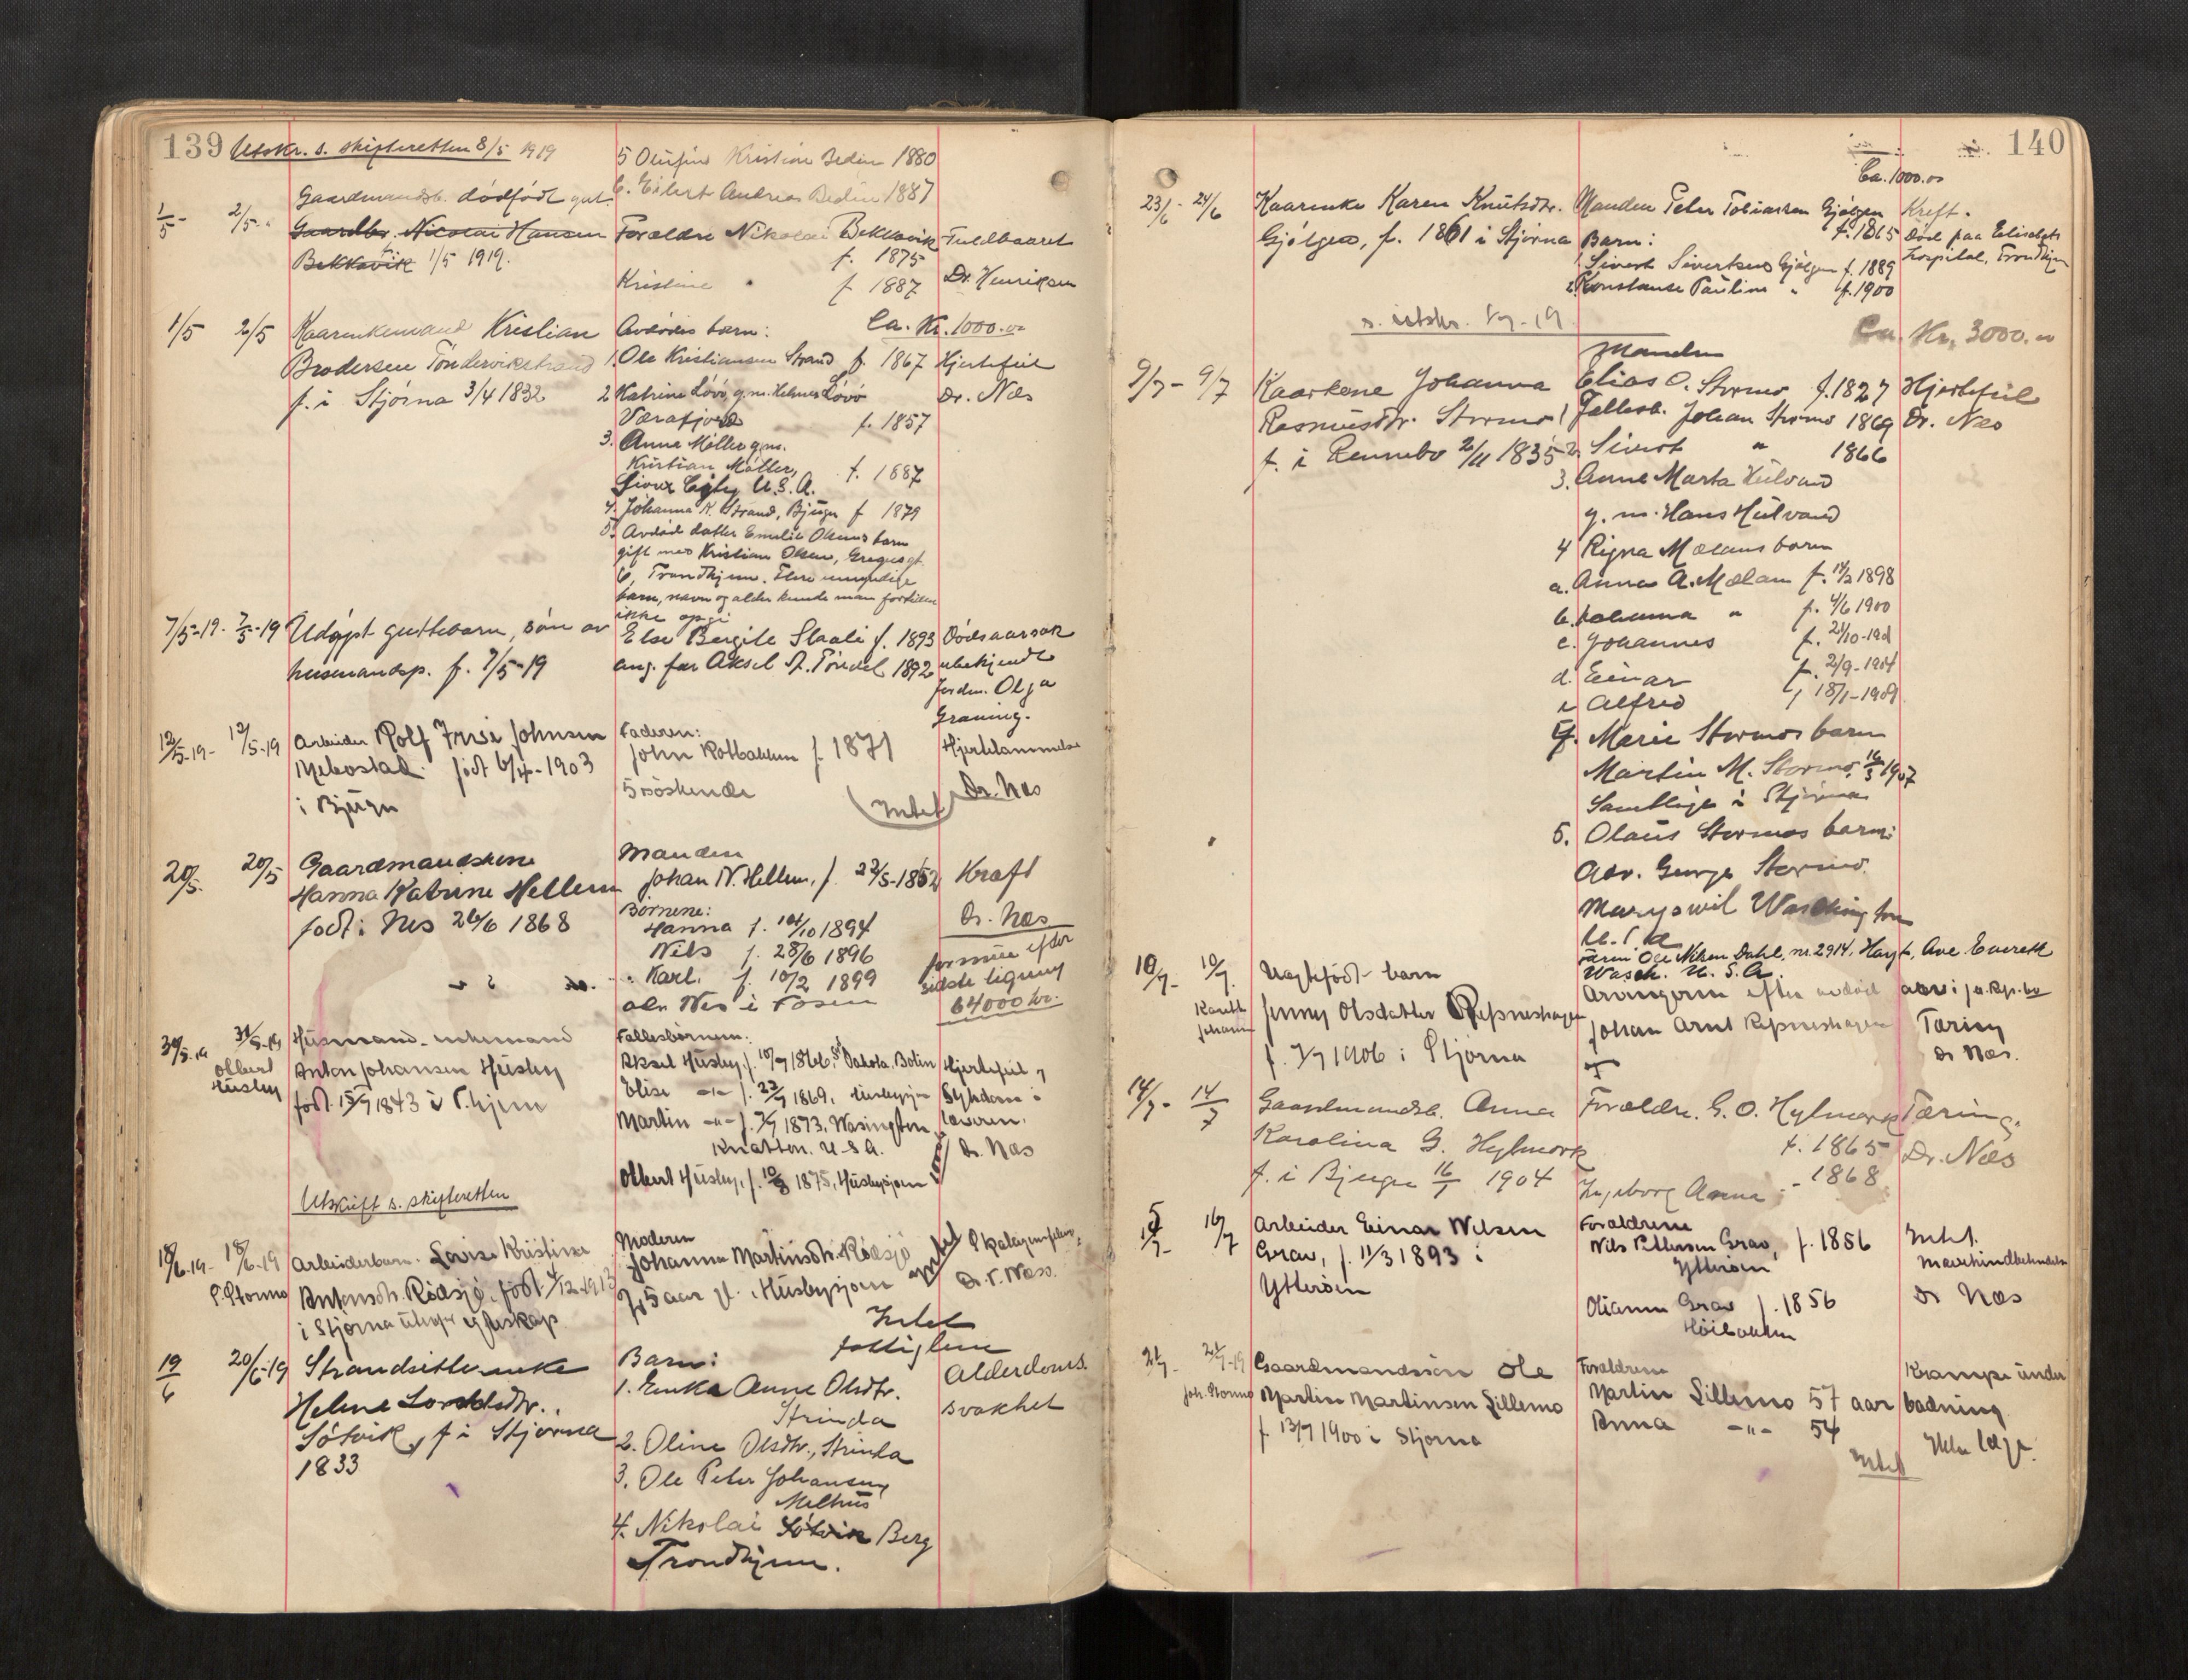 139
Utskr. s. skifteretten 8/5 1919
5 Olufine Kristine Bedin 1880
6. Eilert Andreas Bedin 1887
1/5 - 2/5
Gaardmandsb. dødfødt gut.
Gaardbr. Nicolai Hansen
Bekkavik 1/5 1919.
Forældre Nikolai Bekkavik
f. 1875
Kristine " f 1887
Fuldbaaret
Dr. Henriksen
1/5 2/5
Kaarenkemand Kristian
Brodersen Tøndervikstrand
f. i Stjørna 3/4 1832
Avdødes barn: Ca. Kr. 1000.00
1. Ole Kristiansen Strand f. 1867
2 Katrine Løvø, g.m. Løvø
Værafjord f. 1857
3. Anna Møller g.m.
Kristian Møller, f. 1887
Sioux City U.S.A.
4. Johanna K. Strand, Bjugn f 1879
5. Avdød datter Emilie Olsens barn
gift med Kristian Olsen, Gregusgt.
6, Trondhjem. Flere umyndige
barn, navn og alder kunde man fortiden
ikke opgi
Hjertefeil
Dr. Næs
7/5-19. 7/5-19
Udøpt guttebarn, søn av
husmandsp. f. 7/5-19
Else Bergite f. 1893
ang. far Aksel 1892
Dødsaarsak
ubekjendt
Jordm. Olga
Graning.
12/5-19- 12/5-19
Arbeider Rolf Johnsen
født 6/4-1903
i Bjugn
Faderen:
John Rotbakken f. 1871
5 søskende
Intet
Hjertelammelse
Dr. Næs
20/5. 20/5
Gaardmandskone
Hanna Katrine Hellem
født i Nes 26/6 1868
Manden
Johan N. Hellem, f. 27/5-1852
Børnene:
Hanna f. 14/10 1894
Nils f. 28/6 1896
Karl. f. 10/2 1899
alle Nes i Fosen
Kræft
Dr. Næs
formue efter
sidste ligning
64000 kr.
30/5-19 31/5-19
Olbert
Husby
Husmand - enkemand
Anton Johansen Husby
født 15/9 1843 i T.hjem
Fællesbørnene:
Aksel Husby, f. 10/9 1866, Dakota,
Elise -"- f. 22/9 1869, Husbysjøen
Martin -"- f. 7/9 1873, Wasington,
Knatten. U.S.A.
Olbert Husby, f. 10/8 1875, Husbysjøen
Hjertefeil og
Sykdom i
leveren.
Dr. Næs
Utskrift s. skifteretten
18/6-19- 18/6-19
P. Stormo
Arbeiderbarn. Lovise Kristine
Antonsdt. Rødsjø. født 4/12-1913
i Stjørna utenfor egteskap
Moderen
Johanna Martinsdtr. Rødsjø
35 aar Husbysjøen
Intet
Dr. Næss.
19/6 20/6-19
Strandsitterenke
Helene Lorntsdtr.
Søtvik, f i Stjørna
1833
Intet
fattiglem
Barn:
1. Enke Anne Olsdtr.
Strinda
2. Oline Olsdtr., Strinda
3. Ole Peter Johansen
Melhus
4. Nikolai Søtvik Berg
Trondhjem.
Alderdoms
svakhet
140
Ca. 1000.00
23/6 - 24/6
Kaarenke Karen Knutsdtr.
Gjølgen, f. 1861 i Stjørna
Manden Peter Tobiassen Gjølgen
f. 1865
Barn:
1. Sivert Sivertsen Gjølgen f. 1889
2 Konstanse Pauline " f. 1900
Kreft.
Død paa Elisabets
hospital, Trondhjem
s. utskr. 1/9-19
Ca. Kr. 3000.00
9/7 - 9/7
Kaarkone Johanna
Rasmusdtr. Stormo
f. i Rennebo 2/11 1835
Manden
Elias O. Stormo f. 1827
1 Fellesb. Johan Stormo 1869
2. Sivert " 1866
3. Anne Marta Hulvand
g. m. Hans Hulvand
4 Rigna Mælans barn
a. Anna A. Mælan f. 14/3 1898
b. Johanna " f. 4/6 1900
c. Johannes f. 21/10-1901
d. Einar f. 2/9-1904
e Alfred " 18/1-1909
5. Marie Stormos barn
Martin M. Stormo, 16/3 1907
Samtlige i Stjørna
6. Olaus Stormos barn:
Adr. George Stormo.
Maryswil Washington
U.S.A
Nilsen Dahl, nr. 2914, Hayt, Ave Everett
Wasch. U. S. A.
Hjertefeil
Dr. Næs
10/7- 10/7.
Uegtefødt barn
Jenny Olsdatter Refsneshagen
f. 7/7 1906 i Stjørna
Arvingerne efter avdød
Johan Arnt Refsneshagen
Tæring
Dr Næs.
14/7 - 14/7
Gaardmandsb. Anna
Karolina G. Hylmork
f. i Bjugn 16/1 1904
Forældre. G. O. Hylmork
f. 1865
Ingeborg Anna - 1868
Tæring.
Dr. Næs
15/7- 16/7
Arbeider Einar Nilsen
Grav, f. 11/3 1893 i
Ytterøen
Forældrene
Nils Pettersen Grav, f. 1856
Ytterøen
Grav f. 1856
Høibakken
Intet.
Dr Næs
21/7- 21/7-19
Joh. Stormo
Gaardmandssøn Ole
Martin Martinsen Lillemo
f. 13/7 1900 i Stjørna
Forældrene
Martin Lillemo 57 aar
Anna -"- 54
Intet
Krampe under
badning
Ikke læge.